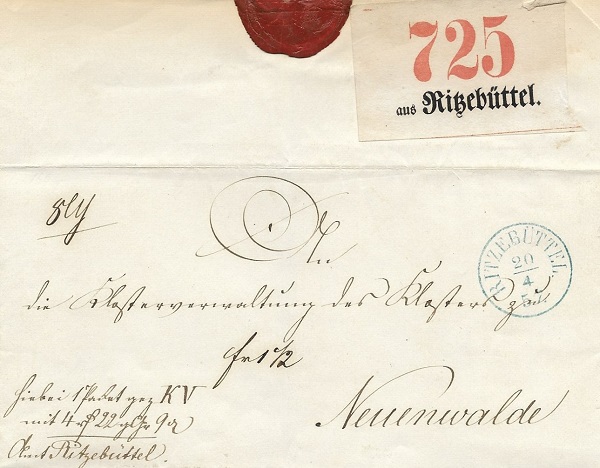 725
aus Ritzebüttel.
An
RITZEBÜTTEL
20
4
die Klosterverwaltung des Klosters zu
fr 1 1/2
hiebei 1 Packet gez KV
mit 4 rf 22 gGr 9 d
Neuenwalde
Amt Ritzebüttel.